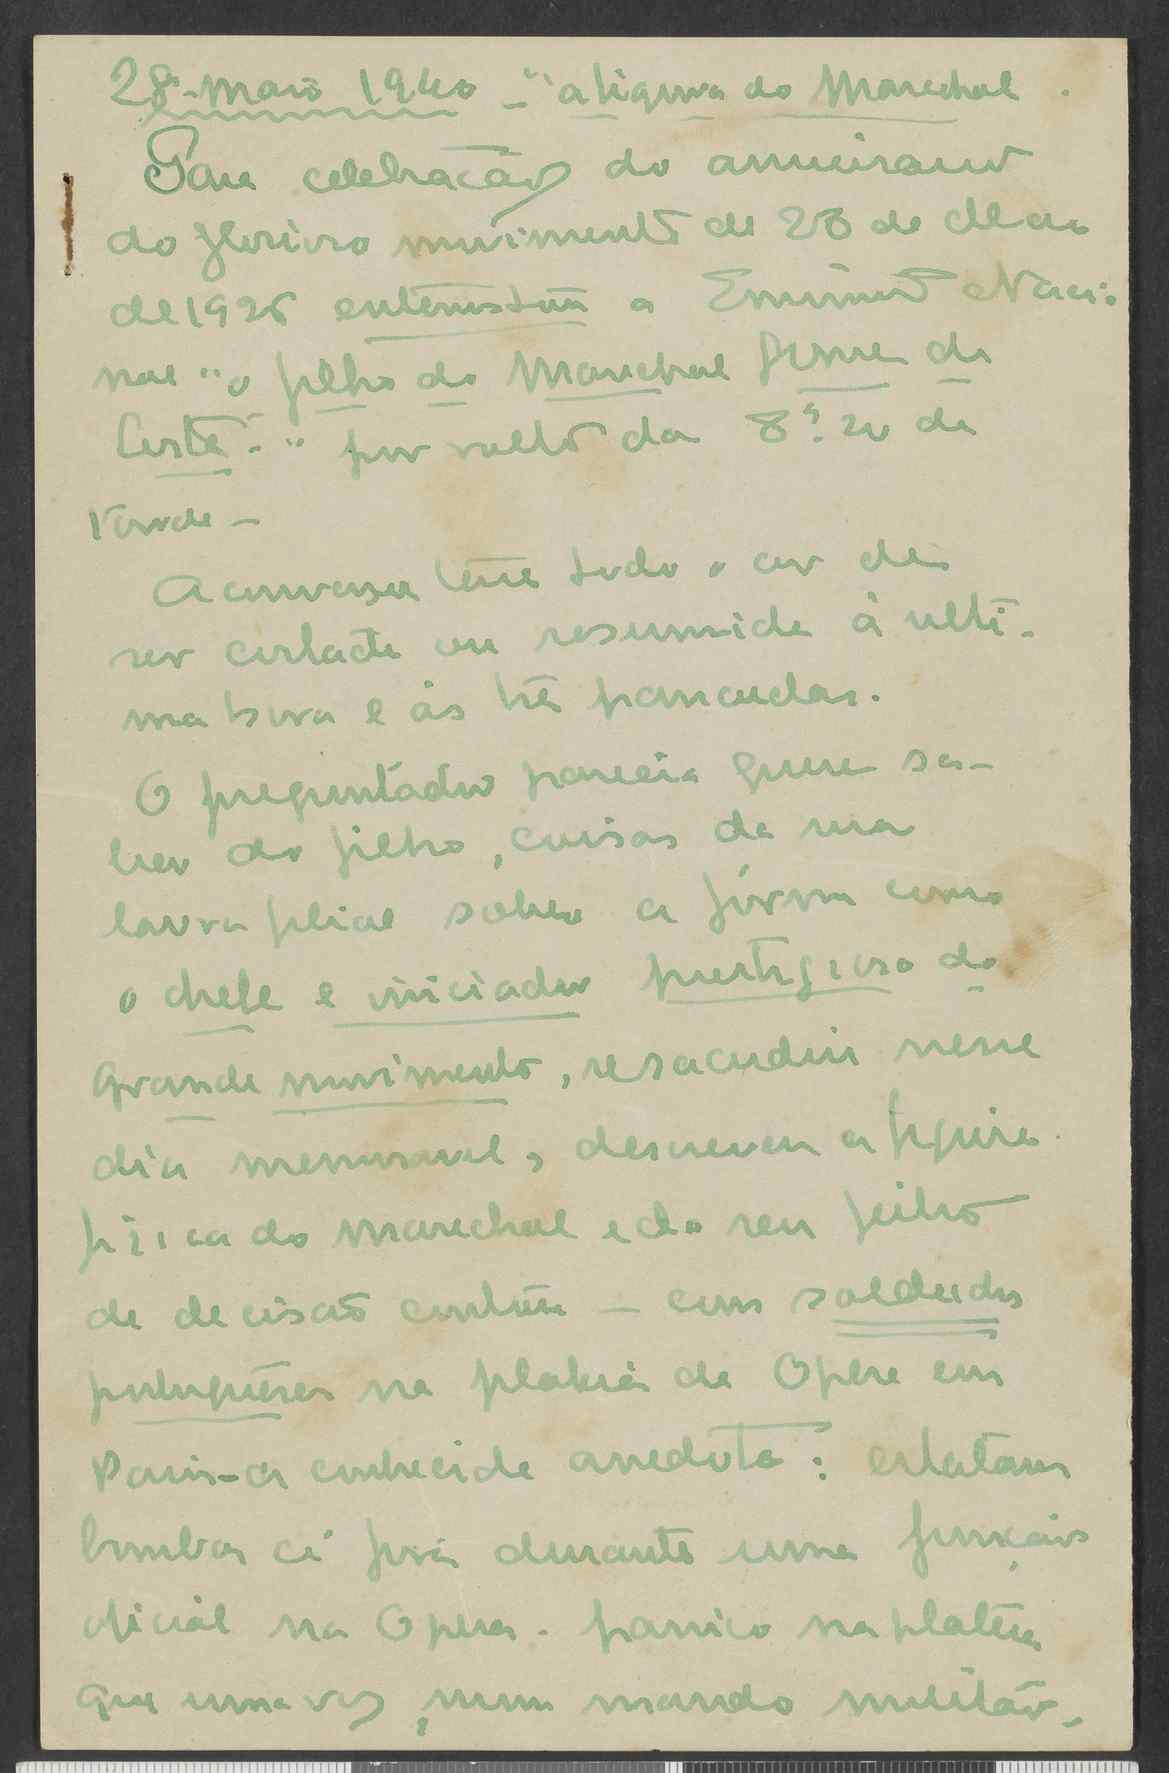 28 - maio 1940 - "a figura do Marechal.
Para celebração do aniversario
do glorioso movimento de 28 de Maio
de 1926 entrevistou a Emissora Nacio
nal "o filho do Marechal Gomes da
Costa -" por volta das 8 h. 20 da
tarde -
A conversa teve todo o ar de
ser cortada ou resumida à ulti-
ma hora e às três pancadas.
O preguntador parecia querer sa-
ber do filho, coisas da sua
lavra filial sobre a fórma como
o chefe e iniciador prestigioso do
grande movimento, se sacudiu nesse
dia memoravel, descreveu a figura
fisica do marechal e do seu feitio
de decisão contou - com soldados
portugueses na plateia da Opera em
Paris - a conhecida anedota: estalam
bombas cá fora durante uma função
oficial na Opera. panico na plateia
que uma voz, num mando militar,